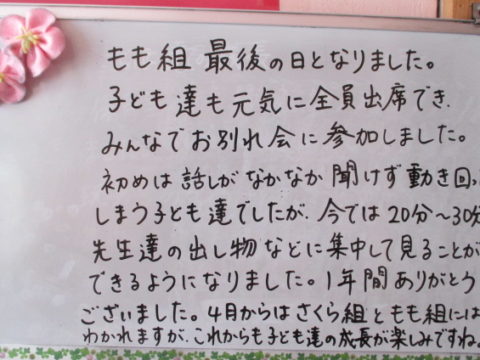 もも組 最後の日となりました。
子ども達も元気に全員出席でき、
みんなでお別れ会に参加しました。
初めは話しがなかなか聞けず動き回っ
しまう子ども達でしたが、今では20分〜30分
先生達の出し物などに集中して見ることが
できるようになりました。1年間ありがとう
ございました。4月からはさくら組ともも組には
わかれますが、これからも子ども達の成長が楽しみですね。